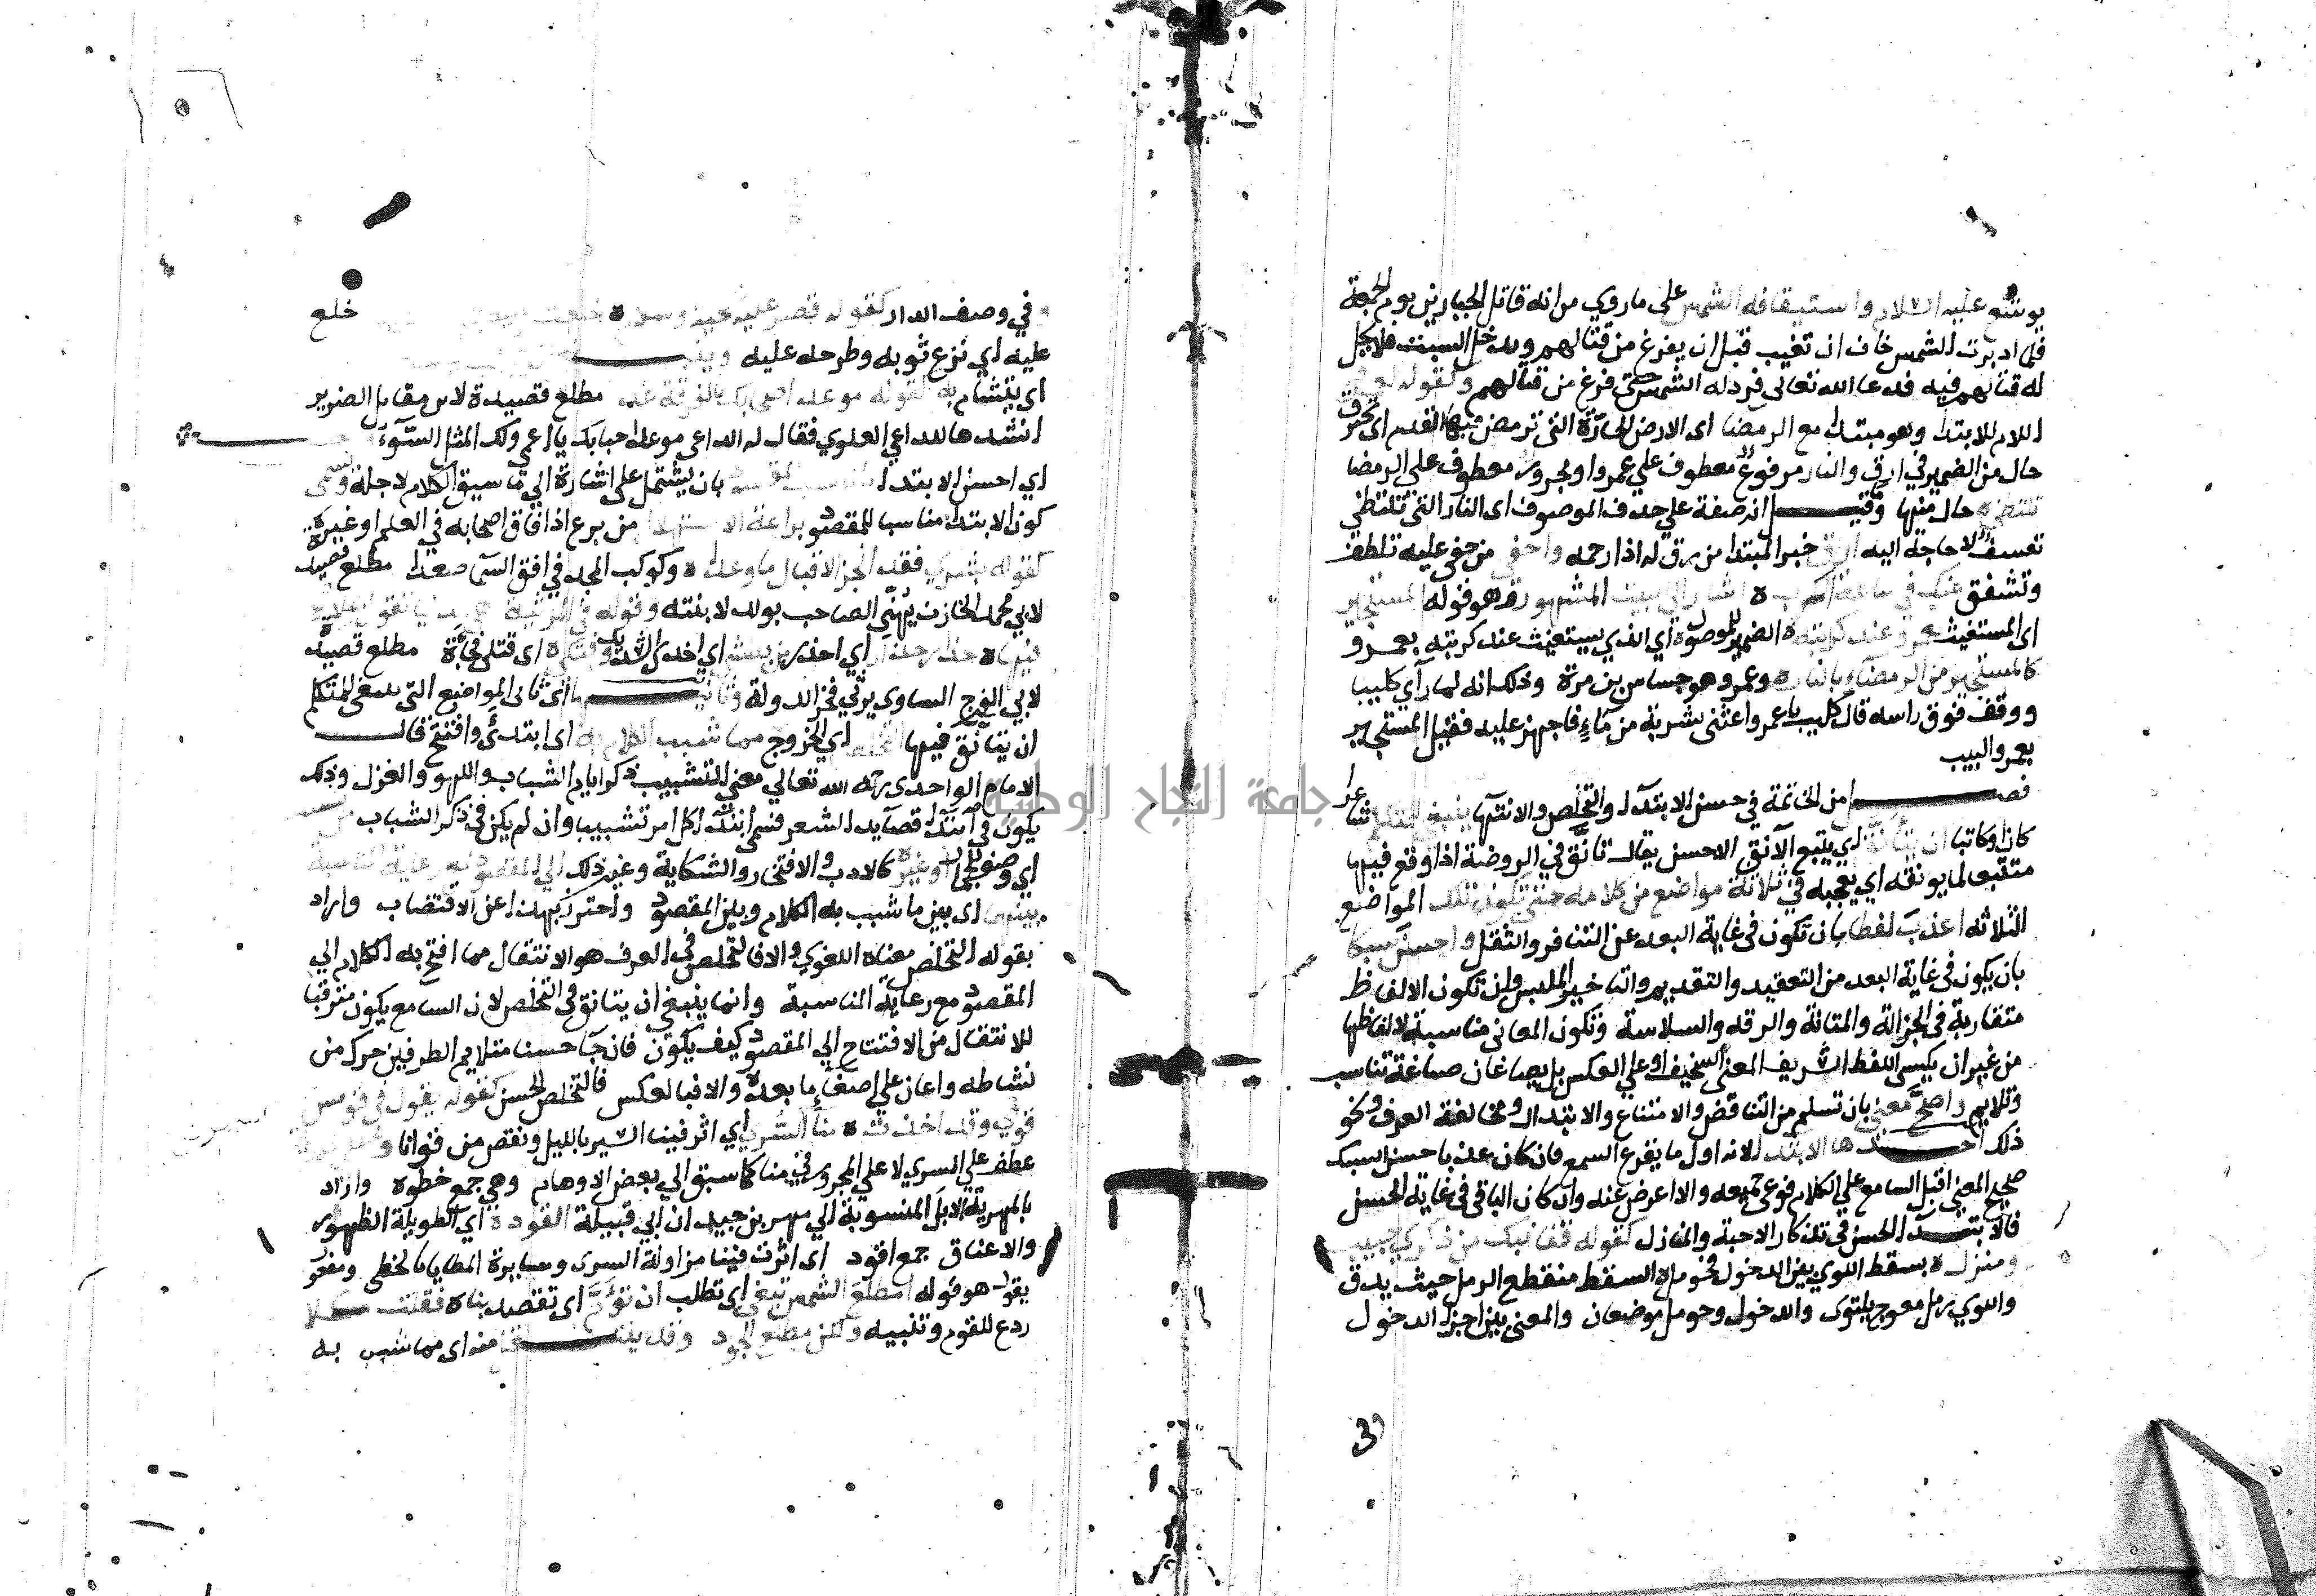 يوشع عليه السلام واستيقافه الشمس على ماروي من انه قاتل الجبارين يوم الجمعة
فلما ادبرت الشمس خاف ان تغيب قبل ان يفرغ من قتالهم ويدخل السبت فلا يحل
له قتالهم فيه فدعا الله تعالى فرد له الشمس حتى فرغ من قتالهم وكقوله لعمرو
اللام للابتدا وهو مبتدا مع الرمضا اى الارض الحارة التى ترمض فيها القدم اى تحترق
حال من الضمير في ارق والنار مرفوع معطوف على عمرو او مجرور معطوف على الرمضا
تلتظي حال منها وقيل انه صفة على حذف الموصوف اى النار التى تلتظي
تعسف لا حاجة اليه ارق خبر المبتدا من رق له اذا رحمه واحفى من حفى عليه تلطف
وتشفق منك في ساعة الكرب ه اشار الى البيت المشهور وهو قوله المستجير
اى المستغيث بعمرو عند كربته ه الضمير للموصول اي الذي يستغيث عند كربته بعمرو
كالمستجير من الرمضاء بالنار ه وعمرو هو جساس بن مرة وذلك انه لما رآي كليبا
ووقف فوق راسه قال كليب يا عمرو اغثني بشربة من ماءٍ فاجهز عليه فقيل المستجير
بعمرو البيت
فصل من الخاتمة في حسن الابتداء والتخلص والانتها ينبغي للمتكلم شاعرا
كان او كاتبا ان يتانق اي يتبع الآنق الاحسن يقال تانق في الروضة اذا وقع فيها
متتبعا لما يونقه اي يعجبه في ثلاثة مواضع من كلامه حتى تكون تلك المواضع
الثلاثه اعذب لفظا بان تكون في غاية البعد عن التنافر والثقل واحسن سبكا
بان يكون في غاية البعد من التعقيد والتقديم والتاخير الملبس وان تكون الالفاظ
متقاربة في الجزالة والمتانة والرقه والسلاسة وتكون المعانى مناسبة لالفاظها
من غير ان يكسى اللفظ الشريف المعنى السخيف او على العكس بل يصاغان صياغة تناسب
وتلايم واصح معنى بان تسلم من التناقض والامتناع والابتدال ومخالفة العرف ونحو
ذلك احدها الابتداء لانه اول ما يقرع السمع فان كان عذبا حسن السبك
صحيح المعنى اقبل السامع على الكلام فوعى جميعه والا اعرض عنه وان كان الباقى في غاية الحسن
فالابتداء الحسن في تذكار الاحبة والمنازل كقوله قفا نبك من ذكري حبيب
ومنزل ه بسقط اللوي بين الدخول فحومل ه السقط منقطع الرمل حيث يدق
واللوي رمل معوج يلتوى والدخول وحومل موضعان والمعنى بين اجزا الدخول
3
وفي وصف الدار كقوله قصر عليه تحية وسلام ه خلعت خلع
عليه اي نزع ثوبه وطرحه عليه
اى يتشام به كقوله موعد احبابك بالفرقة غد مطلع قصيدة لابن مقابل الضرير
انشدها للداعي العلوي فقال له الداعي موعد احبابك يا اعمى ولك المثل السوء
اي احسن الابتداء بان يشتمل على اشارة الى ما سيق الكلام لاجله ويسمى
كون الابتدا مناسبا للمقصود براعة الاستهلال من برع اذا فاق اصحابه في العلم او غيره
كقوله بشري فقد انجز الاقبال ما وعدا ه وكوكب المجد في افق السما صعدا مطلع قصيدة
لابي محمد الخازن يهنى الصاحب بولد لابنته وقوله في المرثية هي الدنيا تقول بملء
فيها ه حذار حذار اي احذر من بطشي اي اخذي الشديد وفتكي ه اى قتلى فجأة مطلع قصيدة
لابي الفرج الساوى يرثي فخر الدولة وثانيها اى ثانى المواضع التى ينبغي للمتكلم
ان يتانق فيها التخلص اي الخروج مما شبب الكلام به اى ابتدئ وافتتح قال
الامام الواحدى رحمه الله تعالى معنى التشبيب ذكر ايام الشباب واللهو والغزل وذلك
يكون في ابتداء قصايد الشعر فسمى ابتداء كل امر تشبيبا وان لم يكن في ذكر الشباب من
اي وصف للجمال او غيره كالادب والافتخار والشكاية وغير ذلك الى المقصود مع رعاية المناسبة
بينهما اى بين ما شبب به الكلام وبين المقصود واحترز بهذا عن الاقتضاب واراد
بقوله التخلص معناه اللغوي والا فالتخلص في العرف هو الانتقال مما افتتح به الكلام الى
المقصود مع رعاية المناسبة وانما ينبغي ان يتانق في التخلص لان السامع يكون مترقبا
للانتقال من الافتتاح الى المقصود كيف يكون فان جا حسنا متلايم الطرفين حرك من
نشاطه واعان على اصغاءِ ما بعده والا فبالعكس فالتخلص الحسن كقوله يقول في قومس
قومي وقد اخذت ه منا السري اي اثر فينا السير بالليل ونقص من قوانا
عطف على السري لا على المجرور في منا كما سبق الى بعض الاوهام وهي جمع خطوة واراد
بالمهرية الابل المنسوبة الى مهر بن حيدان ابي قبيلة القود ه اي الطويلة الظهور
والاعناق جمع اقود اى اثرت فينا مزاولة السرى ومسايرة المطايا بالخطى ومفعول
يقول هو قوله امطلع الشمس تبغي اى تطلب ان تؤم اى تقصد بنا ه فقلت كلا
ردع للقوم وتنبيه ولكن مطلع الجود وقد ينتقل منه اى مما شبب به
جامعة النجاح الوطنية